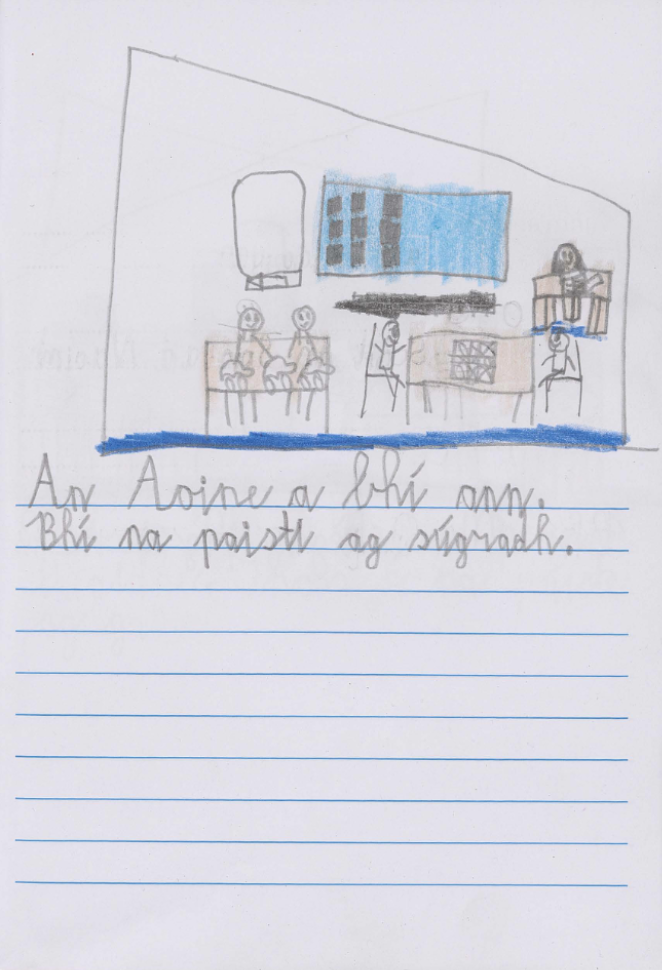 An Aoine a bhí ann.
Bhí na paistí ag súgradh.